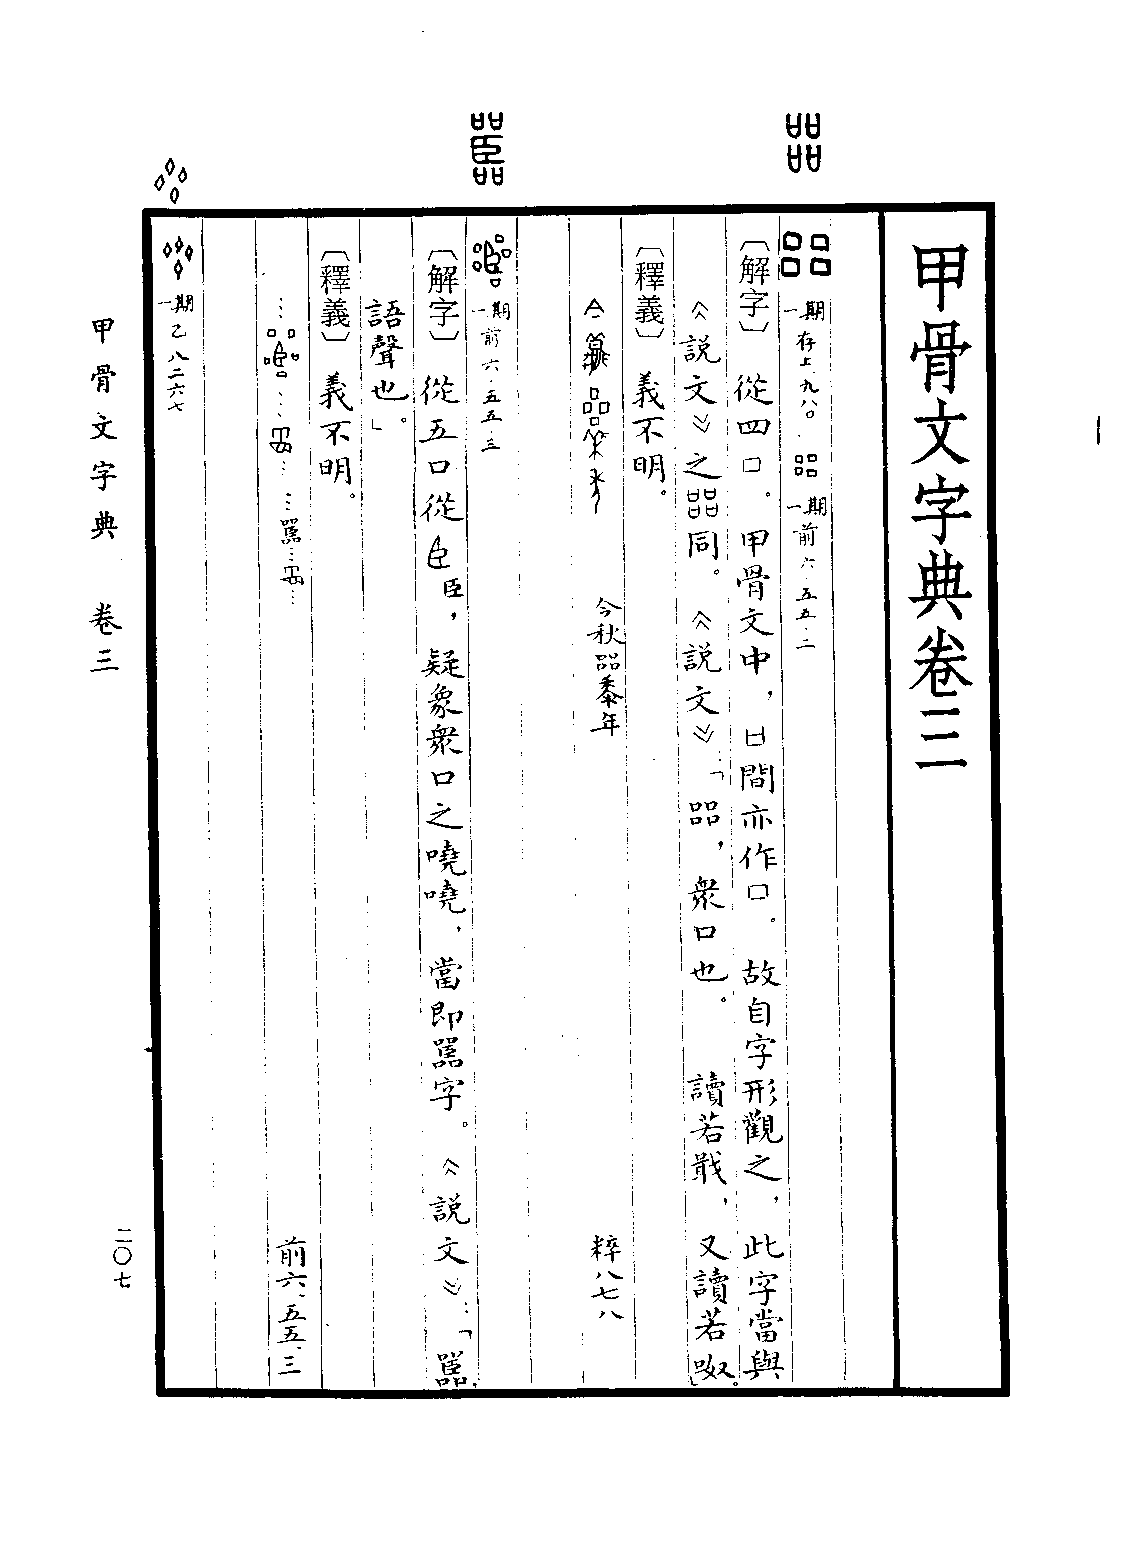 甲骨文字典卷三
㗊
一期 存上.九八〇
一期 前六.五五.二
〔解字〕從四口。甲骨文中,日間亦作口。故自字形觀之,此字當與
《說文》之㗊同。《說文》:「㗊,衆口也。 讀若戢,又讀若呶。」
〔釋義〕義不明。
今秋㗊黍年 粹八七八
嚚
一期 前六.五五.三
〔解字〕從五口從臣,疑象衆口之嘵嘵,當即嚚字。《說文》:「嚚,
語聲也。」
〔釋義〕義不明。
…嚚…… 前六.五五.三
一期 乙八二六七
甲骨文字典 卷三
二〇七